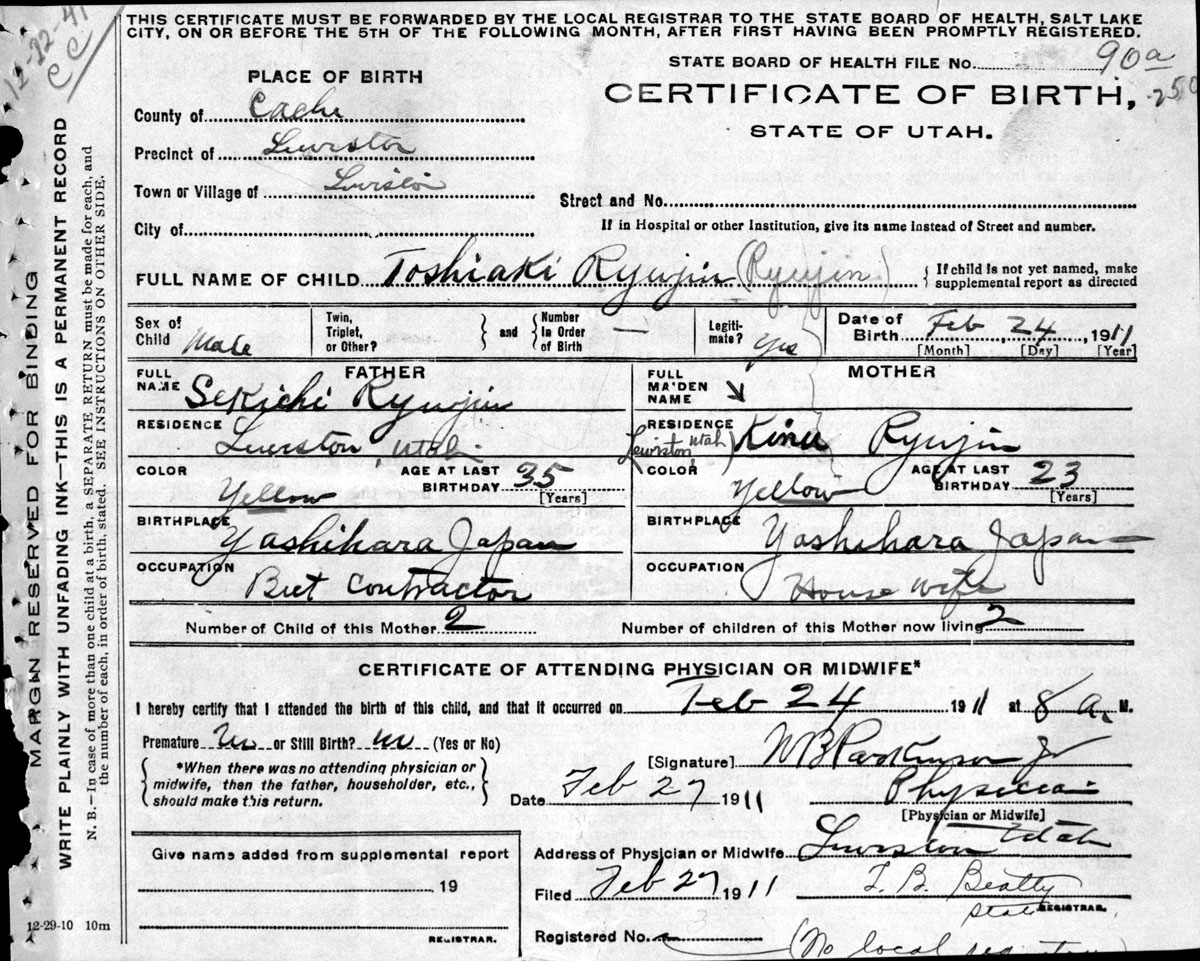 12-22-41
C.C.
THIS CERTIFICATE MUST BE FORWARDED BY THE LOCAL REGISTRAR TO THE STATE BOARD OF HEALTH, SALT LAKE
CITY, ON OR BEFORE THE 5TH OF THE FOLLOWING MONTH, AFTER FIRST HAVING BEEN PROMPTLY REGISTERED.
STATE BOARD OF HEALTH FILE No. 90a
250
PLACE OF BIRTH
CERTIFICATE OF BIRTH,
STATE OF UTAH.
County of Cache
Precinct of Lewiston
Town or Village of Lewiston
Street and No.
City of
If in Hospital or other Institution, give its name instead of Street and number.
FULL NAME OF CHILD Toshiaki Ryujin (Ryujin) { If child is not yet named, make
supplemental report as directed
Sex of Child Male
Twin, Triplet, or Other? } and { Number In Order of Birth —
Legiti-mate? Yes
Date of Birth Feb 24, 1911
[Month] [Day] [Year]
FATHER
MOTHER
FULL NAME Sekichi Ryujin
FULL MAIDEN NAME
RESIDENCE Lewiston, Utah
RESIDENCE Lewiston, Utah) Kinu Ryujin
COLOR Yellow
AGE AT LAST BIRTHDAY 35 [Years]
COLOR Yellow
AGE AT LAST BIRTHDAY 23 [Years]
BIRTHPLACE Yashihara Japan
BIRTHPLACE Yoshihara Japan
OCCUPATION Beet Contractor
OCCUPATION House wife
Number of Child of this Mother 2
Number of children of this Mother now living 2
CERTIFICATE OF ATTENDING PHYSICIAN OR MIDWIFE*
I hereby certify that I attended the birth of this child, and that it occurred on Feb 24 1911 at 8 a. M.
Premature no or Still Birth? no (Yes or No)
*When there was no attending physician or
midwife, then the father, householder, etc.,
should make this return.
[Signature] W B Parkinson Jr
Date Feb 27 1911
Physician
[Physician or Midwife]
Address of Physician or Midwife Lewiston Utah
Give name added from supplemental report
19
REGISTRAR.
Filed Feb 27 1911
T. B. Beatty
State REGISTRAR.
Registered No.
(No local registrar)
12-29-10 10m
MARGIN RESERVED FOR BINDING
WRITE PLAINLY WITH UNFADING INK—THIS IS A PERMANENT RECORD
N. B.—In case of more than one child at a birth, a SEPARATE RETURN must be made for each, and
the number of each, in order of birth, stated. SEE INSTRUCTIONS ON OTHER SIDE.